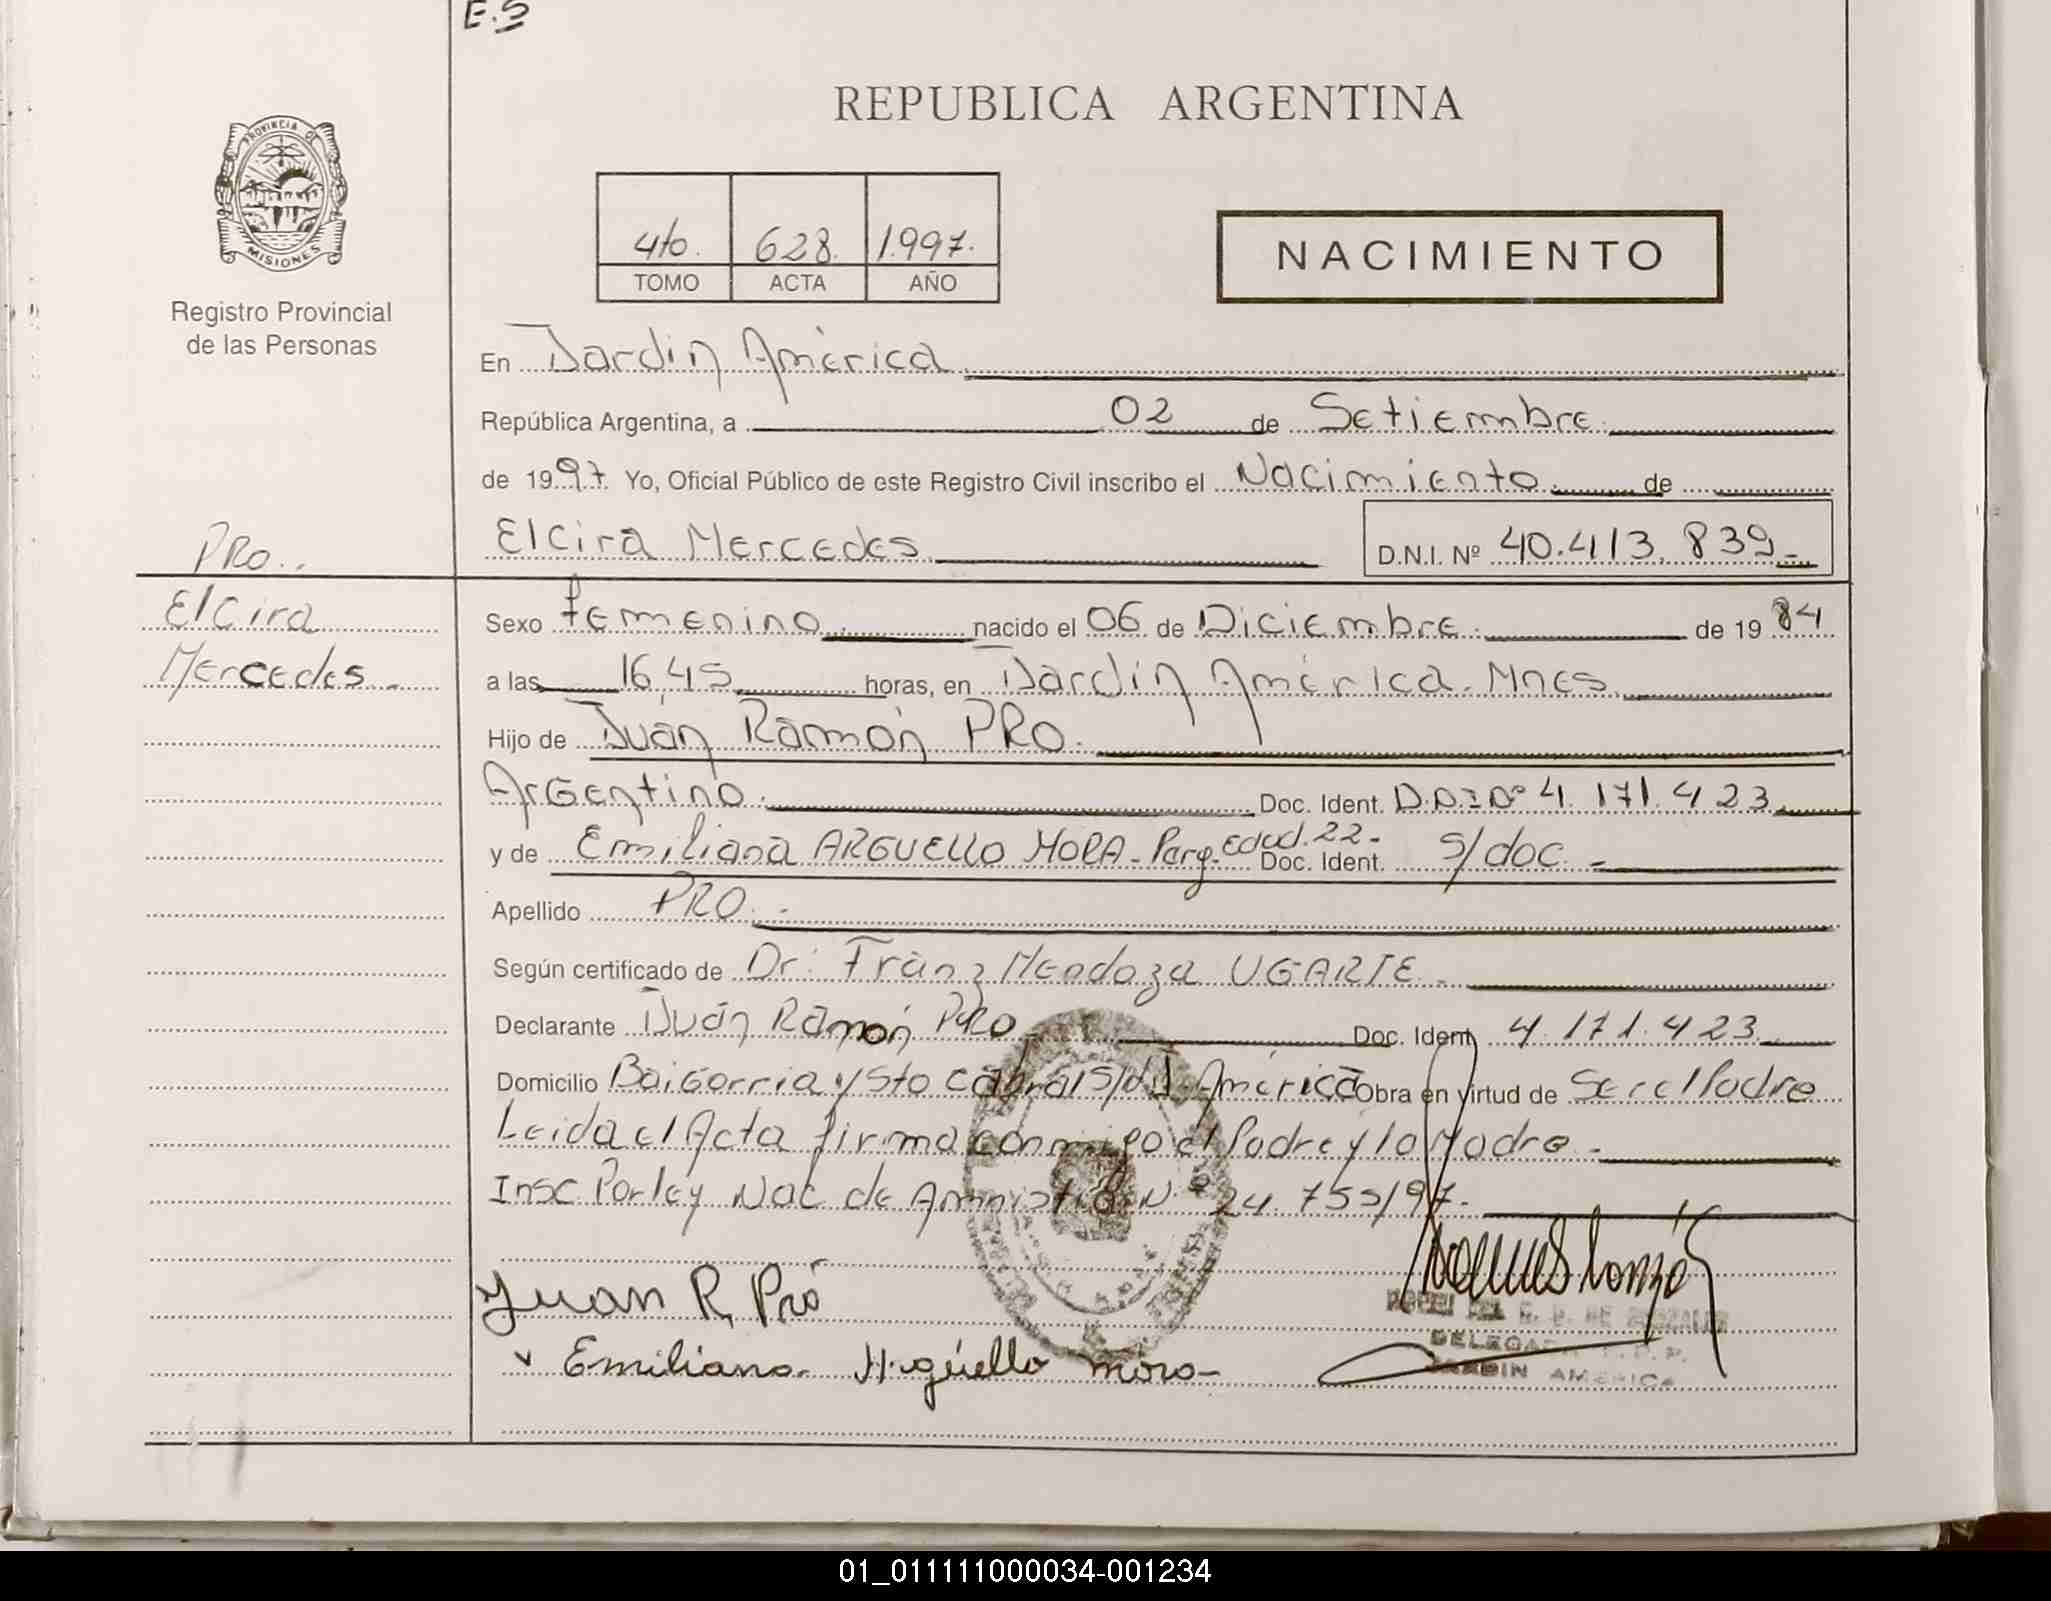 E.S
REPUBLICA ARGENTINA
PROVINCIA DE
MISIONES
4to. 628. 1.997.
TOMO ACTA AÑO
NACIMIENTO
Registro Provincial
de las Personas
En Jardin América.
República Argentina, a 02 de Setiembre.
de 1997. Yo, Oficial Público de este Registro Civil inscribo el Nacimiento. de
Elcira Mercedes. D.N.I. Nº 40.413.839.-
PRO..
Elcira
Mercedes.-
Sexo femenino. nacido el 06 de Diciembre. de 1984
a las 16,45 horas, en Jardin América. Mnes.
Hijo de Juán Ramón PRO.
Argentino. Doc. Ident. D.N.I Nº 4.171.423
y de Emiliana ARGUELLO MORA - Parg. Edad. 22.- Doc. Ident. s/doc.-
Apellido PRO.-
Según certificado de Dr: Franz Mendoza UGARTE.-
Declarante Juán Ramón PRO Doc. Ident. 4.171.423
Domicilio Baigorria y Sto Cabral S/n J. América Obra en virtud de Ser el Padre
Leida el Acta firma conmigo el Padre y la Madre.-
Insc. Por ley Nac de Amnistia N.º 24.755/97.-
Juan R, Pró
Emiliana Argüello mora-
DELEGADA R. P. P.
JARDIN AMERICA
01_011111000034-001234